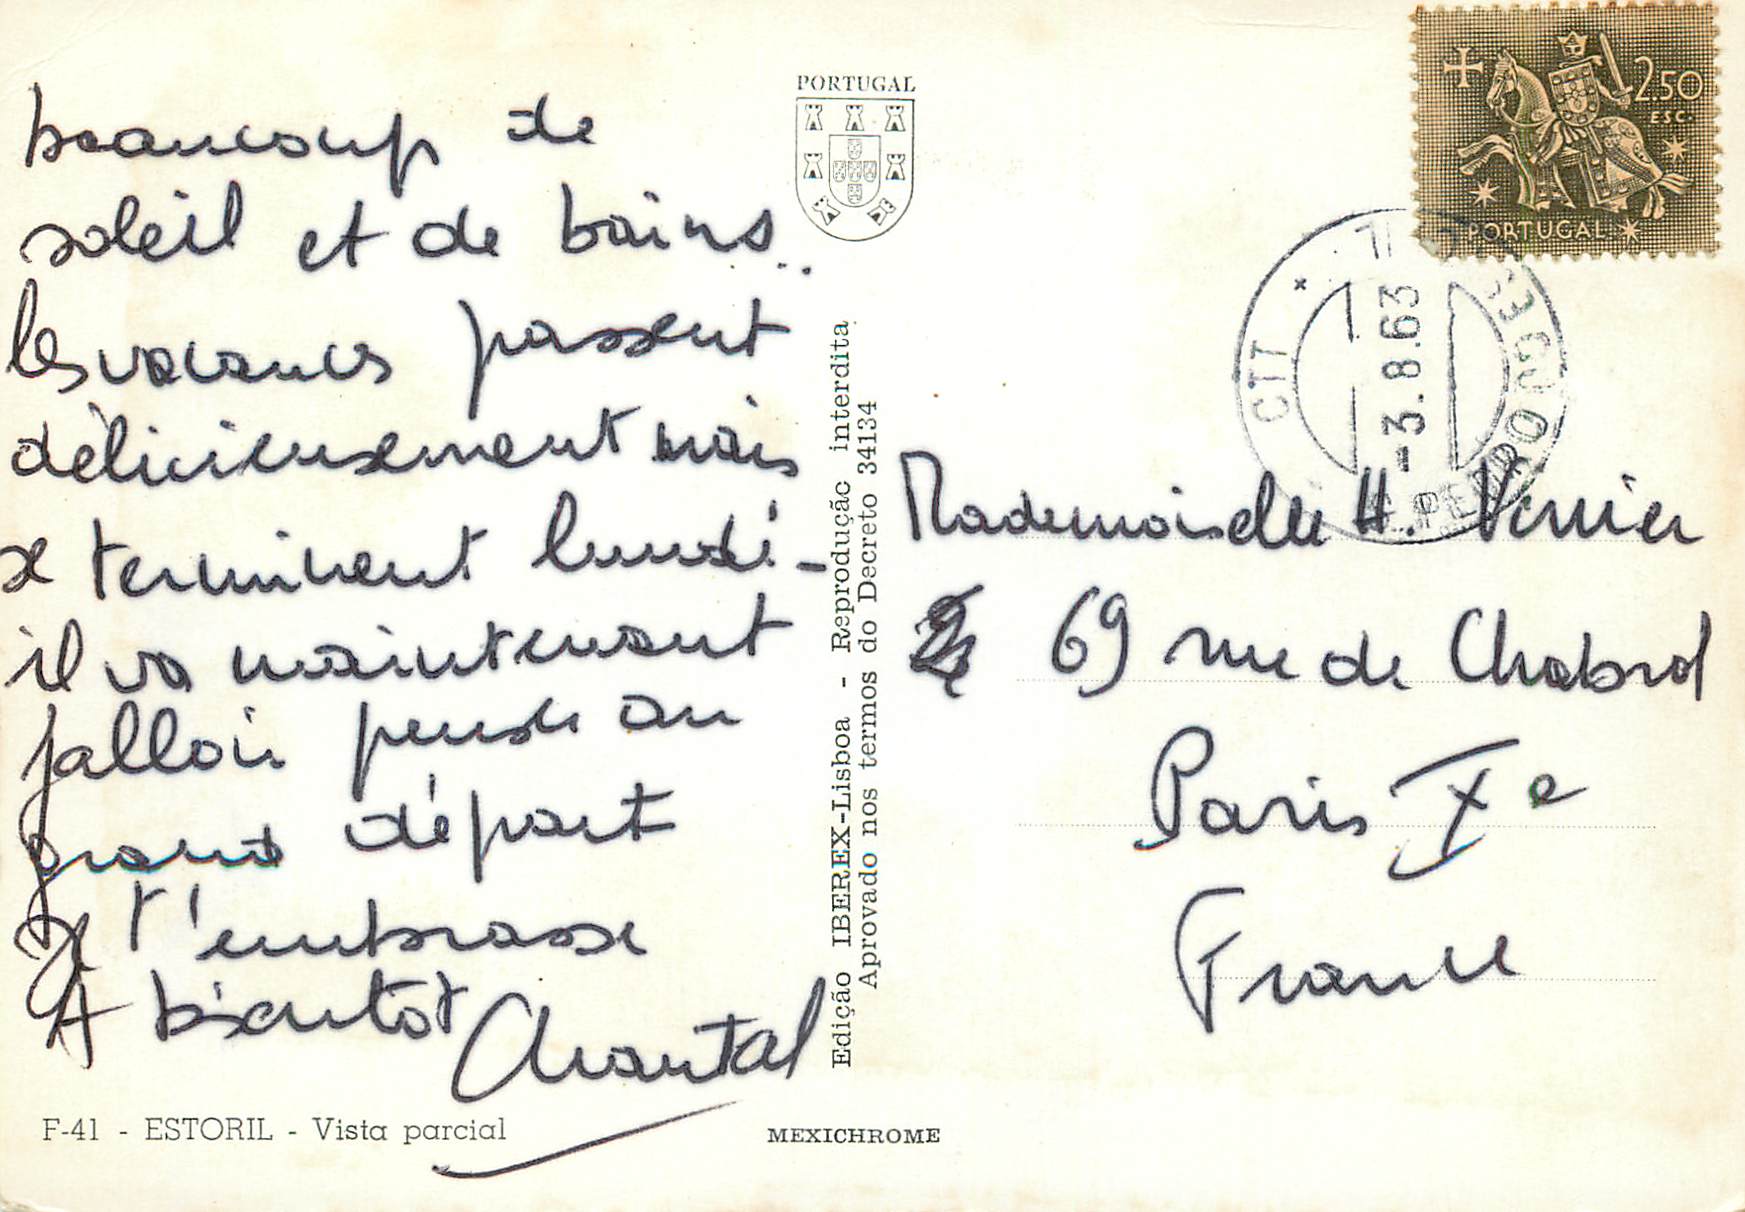 beaucoup de
soleil et de bains..
les vacances passent
délicieusement mais
se terminent lundi -
il va maintenant
falloir penser au
grand départ
Je t'embrasse
A bientôt Chantal
F-41 - ESTORIL - Vista parcial
PORTUGAL
Edição IBEREX-Lisboa - Reprodução interdita
Aprovado nos termos do Decreto 34134
MEXICHROME
2$50
ESC.
PORTUGAL
CTT
-3.8.63
Mademoiselle H. Verrier
69 rue de Chabrol
Paris Xe
France